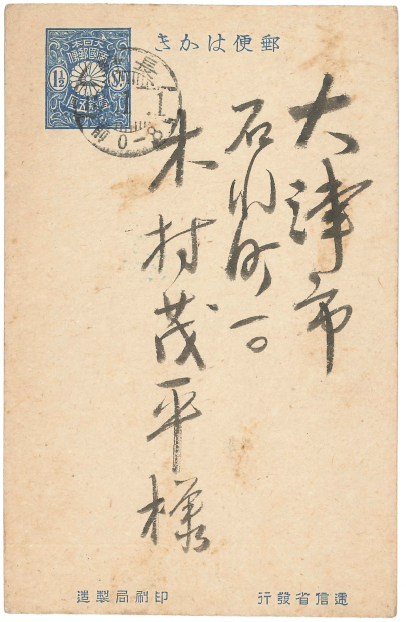 郵便はかき
大日本
帝國郵便
1½
壹錢五厘
長
.1.
前0-8
大津市
石川町一〇
木村茂平様
逓信省發行
印刷局製造